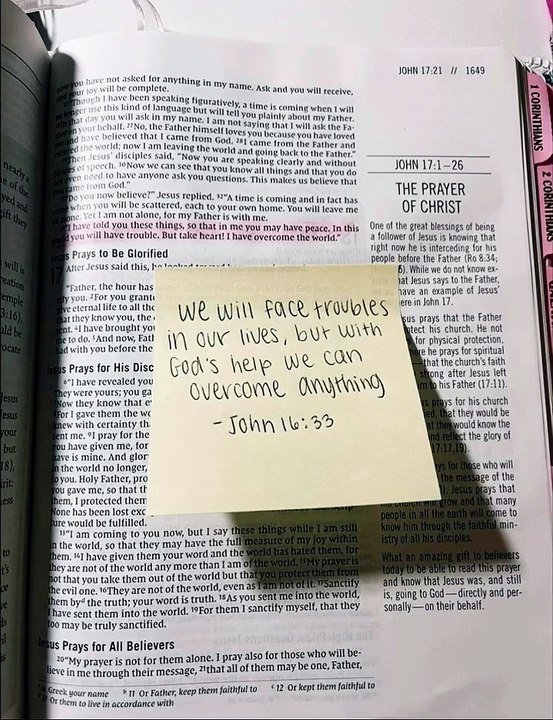 JOHN 17:21 // 1649
you have not asked for anything in my name. Ask and you will receive,
your joy will be complete.
"Though I have been speaking figuratively, a time is coming when I will
longer use this kind of language but will tell you plainly about my Father.
that day you will ask in my name. I am not saying that I will ask the Fa-
on your behalf. 27No, the Father himself loves you because you have loved
and have believed that I came from God. 28I came from the Father and
the world; now I am leaving the world and going back to the Father."
Then Jesus' disciples said, "Now you are speaking clearly and without
of speech. 30Now we can see that you know all things and that you do
even need to have anyone ask you questions. This makes us believe that
came from God."
you now believe?" Jesus replied. 32"A time is coming and in fact has
when you will be scattered, each to your own home. You will leave me
alone. Yet I am not alone, for my Father is with me.
"I have told you these things, so that in me you may have peace. In this
you will have trouble. But take heart! I have overcome the world."
Prays to Be Glorified
17 After Jesus said this, he looked toward
"Father, the hour has
you. 2For you grante
eternal life to all the
that they know you, the
4I have brought you
me to do. 5And now, Fath
had with you before the
Jesus Prays for His Disc
6"I have revealed you
They were yours; you ga
Now they know that e
For I gave them the wo
knew with certainty tha
sent me. 9I pray for the
you have given me, for
have is mine. And glory
in the world no longer,
to you. Holy Father, pro
you gave me, so that th
I protected them
None has been lost exc
ture would be fulfilled.
13"I am coming to you now, but I say these things while I am still
in the world, so that they may have the full measure of my joy within
them. 14I have given them your word and the world has hated them, for
they are not of the world any more than I am of the world. 15My prayer is
not that you take them out of the world but that you protect them from
the evil one. 16They are not of the world, even as I am not of it. 17Sanctify
them by d the truth; your word is truth. 18As you sent me into the world,
I have sent them into the world. 19For them I sanctify myself, that they
too may be truly sanctified.
Jesus Prays for All Believers
20"My prayer is not for them alone. I pray also for those who will be-
lieve in me through their message, 21that all of them may be one, Father,
Greek your name b 11 Or Father, keep them faithful to c 12 Or kept them faithful to
Or them to live in accordance with
we will face troubles
in our lives, but with
God's help we can
overcome anything
- John 16:33
JOHN 17:1–26
THE PRAYER
OF CHRIST
One of the great blessings of being
a follower of Jesus is knowing that
right now he is interceding for his
people before the Father (Ro 8:34;
While we do not know ex-
that Jesus says to the Father,
have an example of Jesus'
here in John 17.
prays that the Father
protect his church. He not
for physical protection,
he prays for spiritual
that the church's faith
strong after Jesus left
to his Father (17:11).
prays for his church
that they would be
they would know the
and reflect the glory of
17:17,19).
prays for those who will
the message of the
Jesus prays that
church will grow and that many
people in all the earth will come to
know him through the faithful min-
istry of all his disciples.
What an amazing gift to believers
today to be able to read this prayer
and know that Jesus was, and still
is, going to God — directly and per-
sonally — on their behalf.
1 CORINTHIANS
2 CORINTHIANS